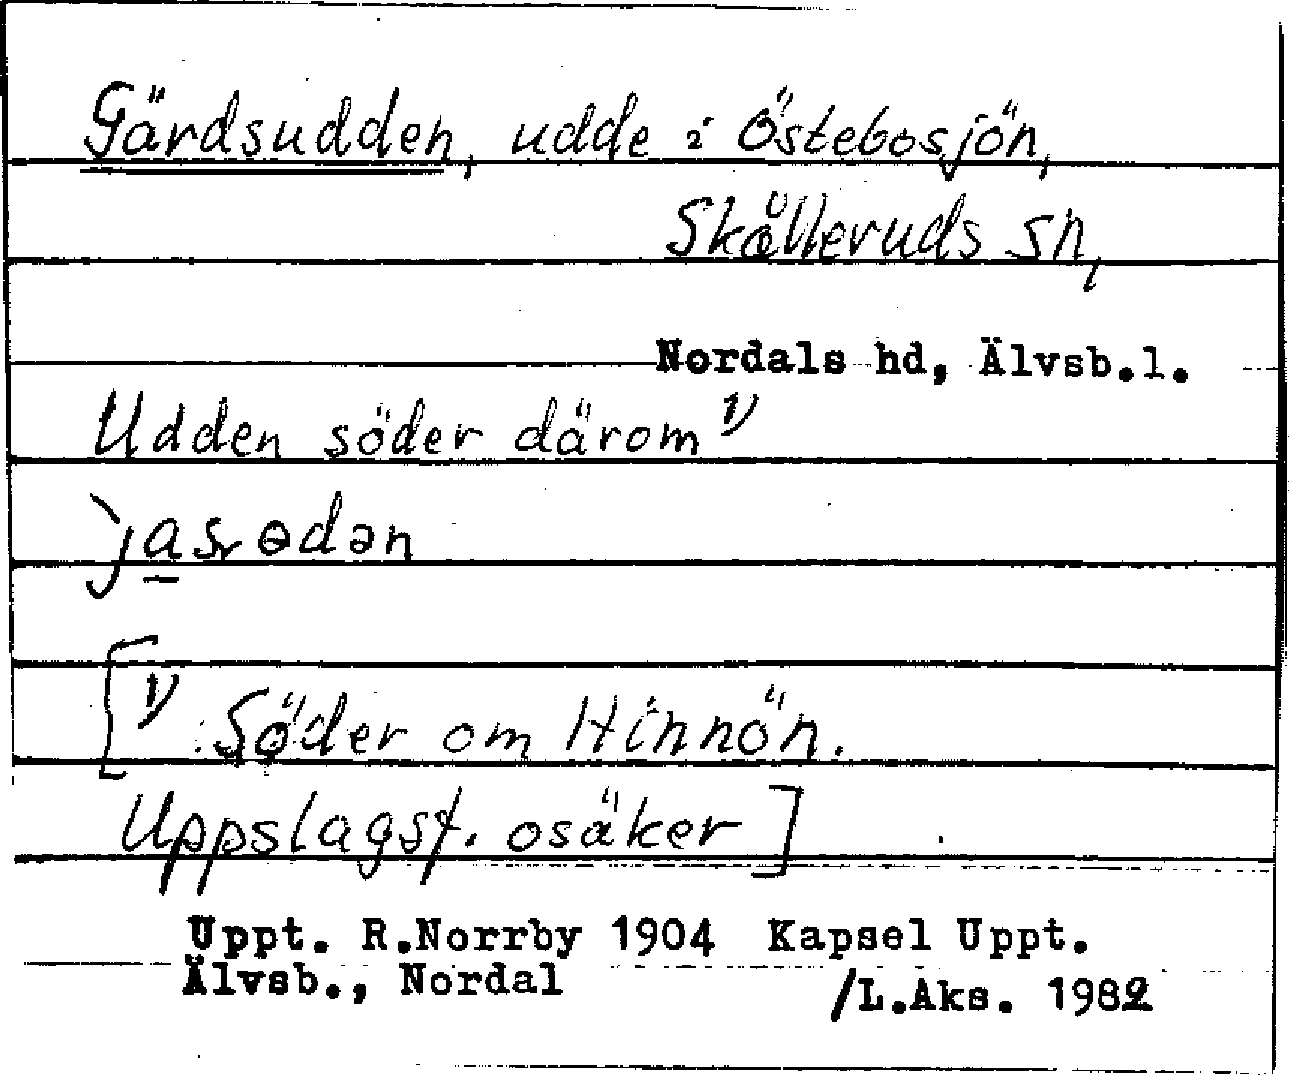 Gärdsudden, udde i Östebosjön,
Skålleruds sn,
Nordals hd, Älvsb.l.
Udden söder därom 1)
`jasrɵdən
[1) Söder om Hinnön.
Uppslagsf. osäker]
Uppt. R.Norrby 1904 Kapsel Uppt.
Älvsb., Nordal
/L.Aks. 1982